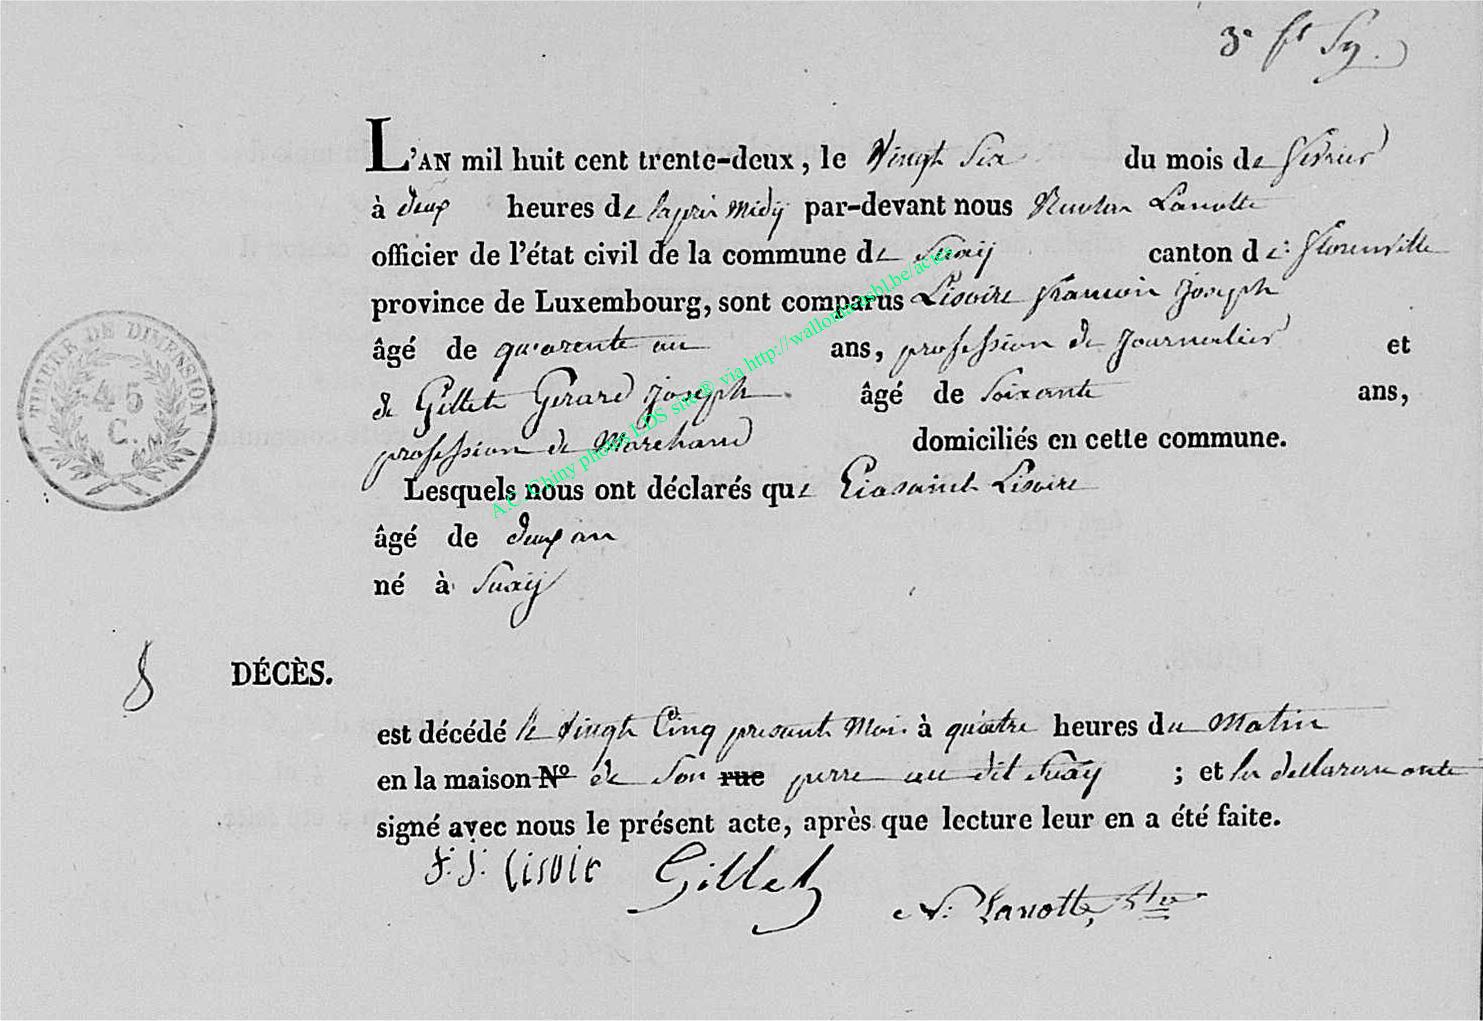 3e ft Sy.
L'AN mil huit cent trente-deux, le vingt Six du mois de fevrier
à deux heures de l'aprés Midij par-devant nous Lanotte
officier de l'état civil de la commune de Suxij canton de Florenville
province de Luxembourg, sont comparus Lisoire François Joseph
âgé de quarente un ans, profession de Journalier et
de Gillet Gerard Joseph âgé de Soixante ans,
profession de Marchand domiciliés en cette commune.
Lesquels nous ont déclarés que Eiasaint Lisoire
âgé de deux an
né à Suxij
8 DÉCÈS.
est décédé le vingt Cinq present Moi à quatre heures du Matin
en la maison No de Son rue perre au dit Suxij ; et les dellarem onte
signé avec nous le présent acte, après que lecture leur en a été faite.
f. j. Lisoir Gillet
N. Lanotte,
TIMBRE DE DIMENSION
45
C.
A.C. Chiny photos LDS site® via http://wallonia-asbl.be/actes